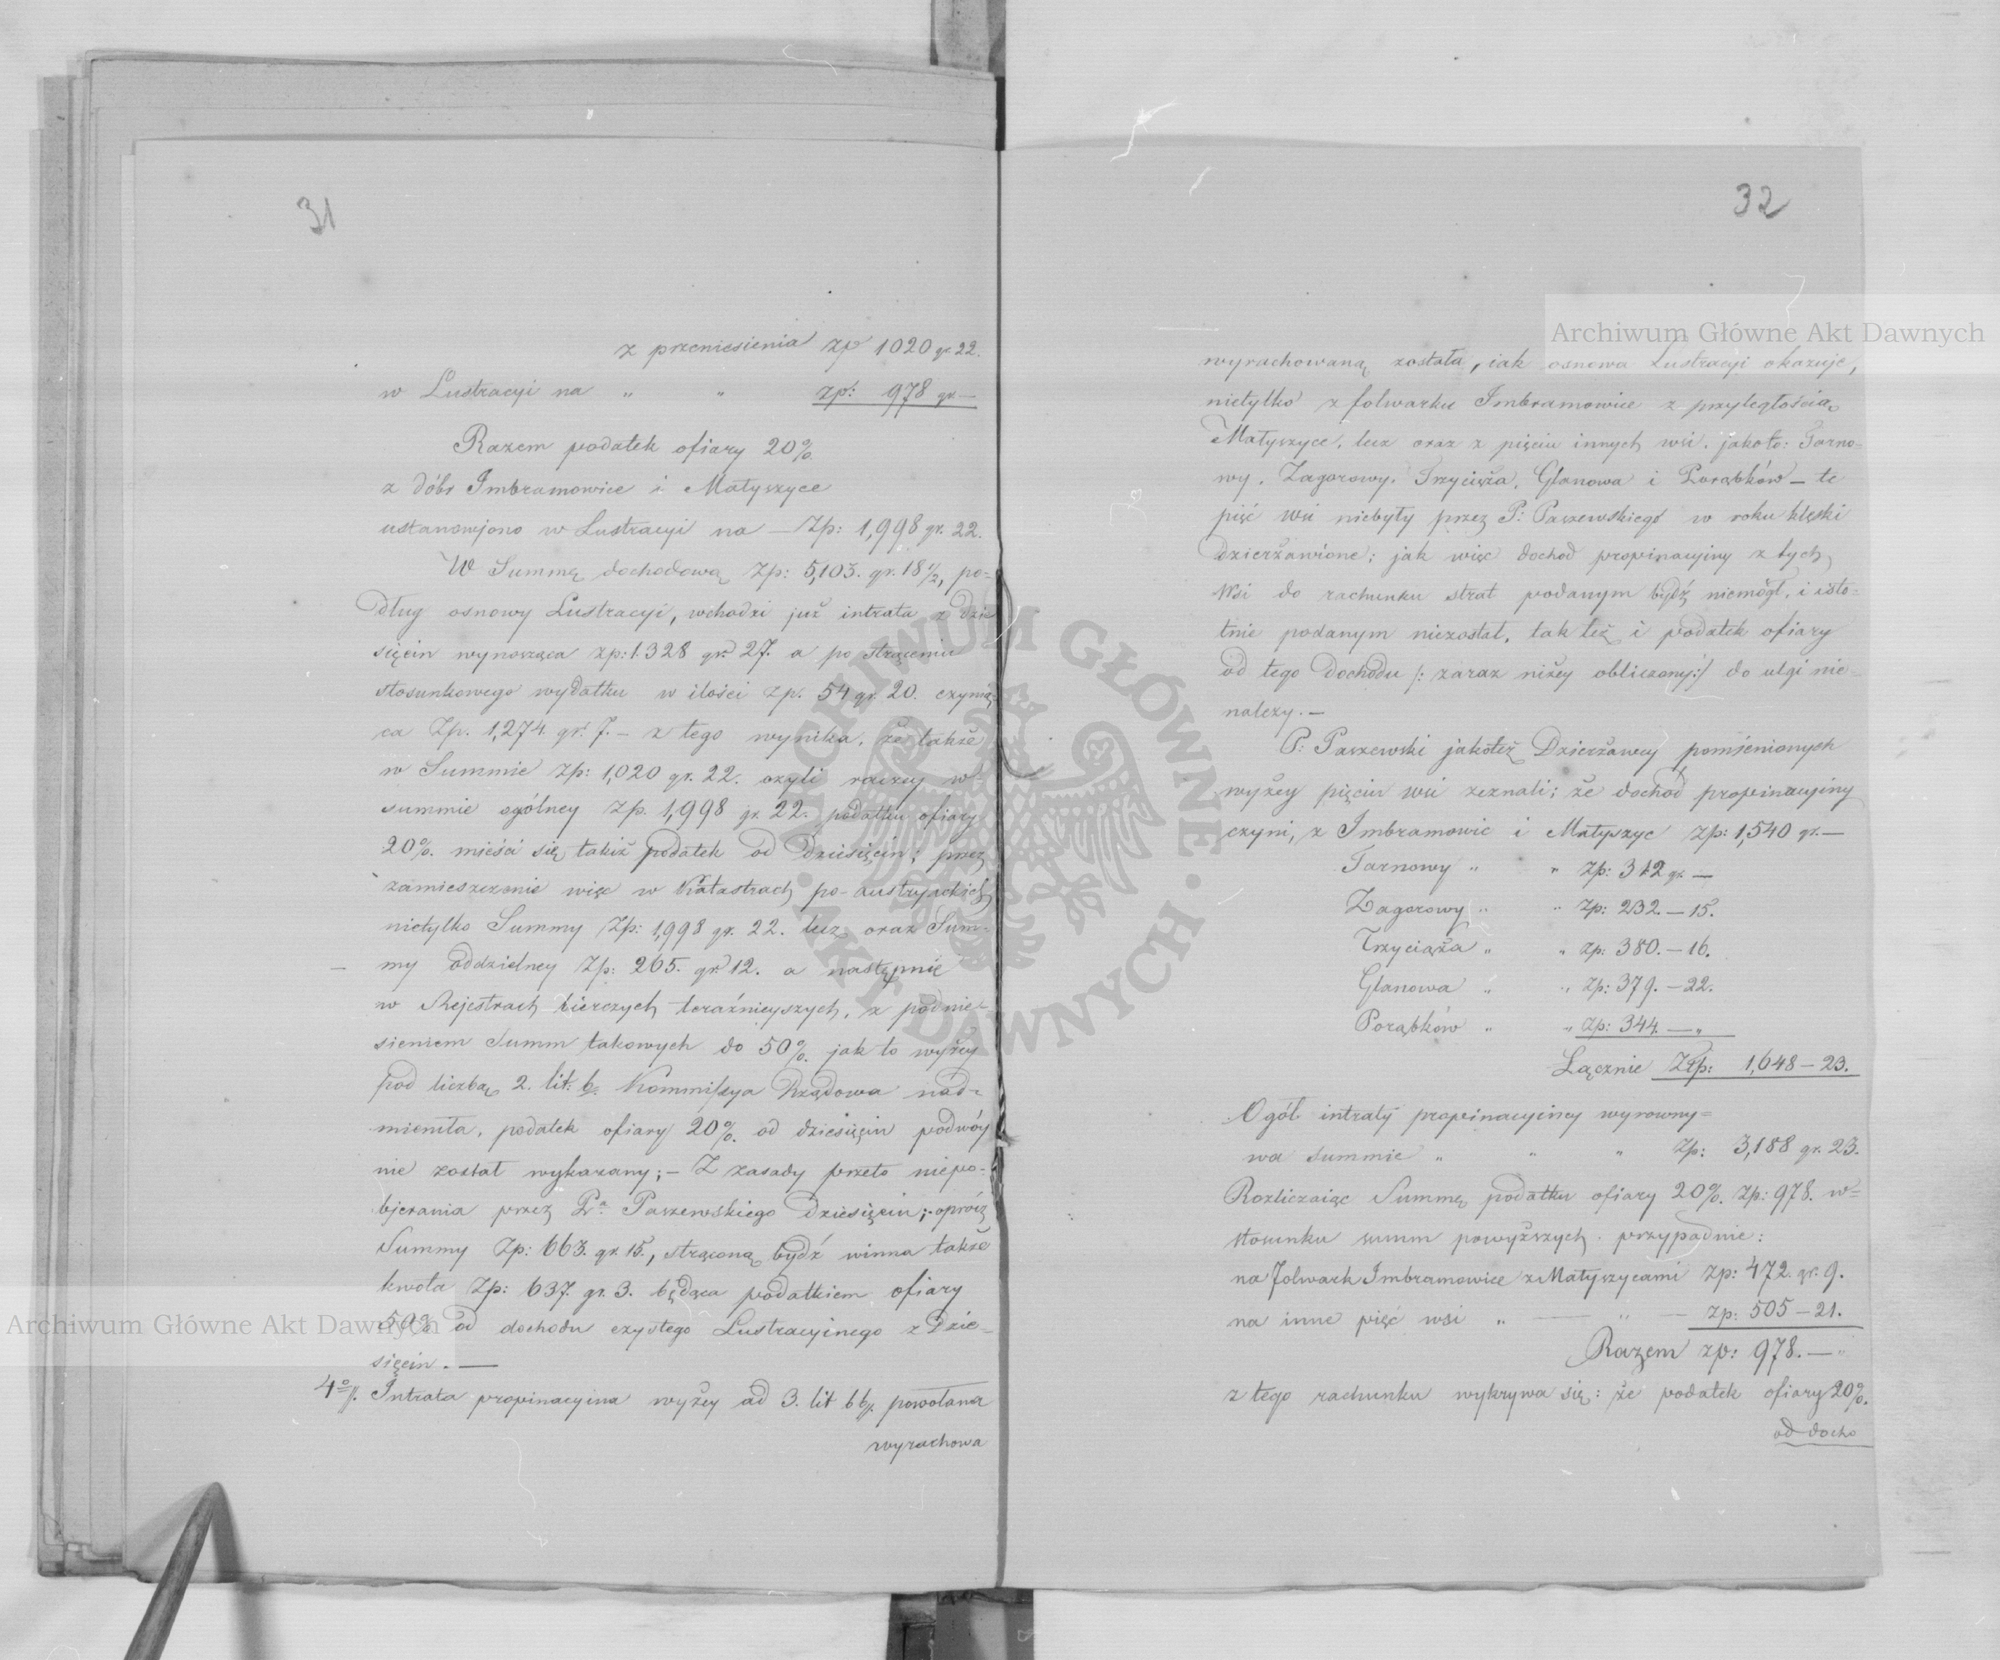 31
z przeniesienia zp 1020 gr 22.
w Lustracyi na " " zp: 978 gr. —
Razem podatek ofiary 20%
z dóbr Imbramowice i Małyszyce
ustanowjono w Lustracyi na — Zp: 1,998 gr. 22.
W Summę dochodową Zp: 5,103. gr. 18 1/2, po-
dług osnowy Lustracyi, wchodzi już intrata z dzie
sięcin wynosząca zp: 1.328 gr. 27. a po strąceniu
stosunkowego wydatku w ilości zp. 54 gr. 20. czynią-
ca Zp. 1,274 gr. 7. – z tego wynika, że także
w Summie Zp: 1,020 gr. 22. czyli raczey w-
summie ogólney Zp. 1,998 gr. 22. podatku ofiary
20%. mieści się takiż podatek od Dziesięcin; przez
zamieszczenie więc w Katastrach po-austryackich
nietylko Summy Zp: 1,998 gr. 22. lecz oraz Sum-
– my oddzielney Zp: 265. gr. 12. a następnie
w Rejestrach bierczych teraźnieyszych, z podnie-
sieniem Summ takowych do 50%. jak to wyżey
pod liczbą 2. lit: b. Kommissya Rządowa nad-
mieniła, podatek ofiary 20%. od dziesięcin podwóy
nie został wykazany; – Z zasady przeto niepo-
bierania przez Pa. Paszewskiego Dziesięcin; oprócz
Summy Zp: 663. gr. 15., strąconą bydź winna także
kwota Zp: 637. gr. 3. będąca podatkiem ofiary
50% od dochodu czystego Lustracyinego z Dzie-
sięcin. —
4o/. Intrata propinacyina wyżey ad 3. lit bb/. powołana
wyrachowa
32
wyrachowaną została, iak osnowa Lustracyi okazuje,
nietylko z folwarku Imbramowice z przyległością
Małyszyce, lecz oraz z pięciu innych wsi. jakoto: Tarno-
wy, Zagorowy, Trzyciąża, Glanowa i Porąbków – te
pięć wsi niebyły przez P: Paszewskiego w roku klęski
Dzierżawione; jak więc dochod propinacyiny z tych
Wsi do rachunku strat podanym bydź niemógł, i isto-
tnie podanym niezostał, tak też i podatek ofiary
od tego Dochodu /: zaraz niżey obliczony :/ do ulgi nie-
należy. —
P: Paszewski jakoteż Dzierżawcy pomienionych
wyżey pięciu wsi zeznali; że dochód propinacyiny
czyni, z Imbramowic i Małyszyc Zp: 1,540 gr. —
Tarnowy " " Zp: 312 gr. —
Zagorowy " " Zp: 232. – 15.
Trzyciąża " " Zp: 380. – 16.
Glanowa " " Zp: 379. – 22.
Porąbków " " Zp: 344. — "
Łącznie Złp: 1,648 – 23.
Ogół intraty propinacyiney wyrowny=
wa summie " " " Zp: 3,188 gr. 23.
Rozliczaiąc Summę podatku ofiary 20%. Zp: 978. w=
stosunku summ powyższych. przypadnie:
na Folwark Imbramowice z Małyszycami Zp: 472. gr. 9.
na inne pięć wsi " — " — Zp: 505 – 21.
Razem zp: 978. — "
z tego rachunku wykrywa się: że podatek ofiary 20%.
od docho
Archiwum Główne Akt Dawnych
Archiwum Główne Akt Dawnych
ARCHIWUM GŁÓWNE · AKT DAWNYCH ·